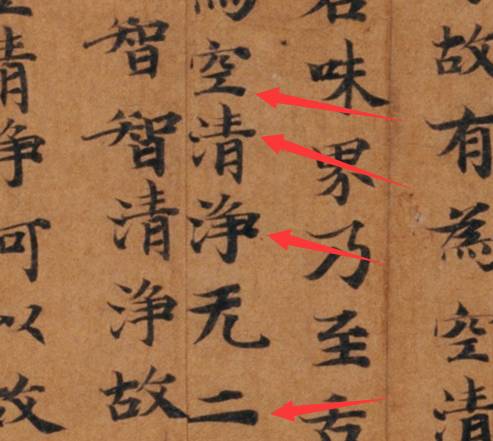 故有為空清
味界乃至舌
空清淨无二
智智清淨故
清淨可以故